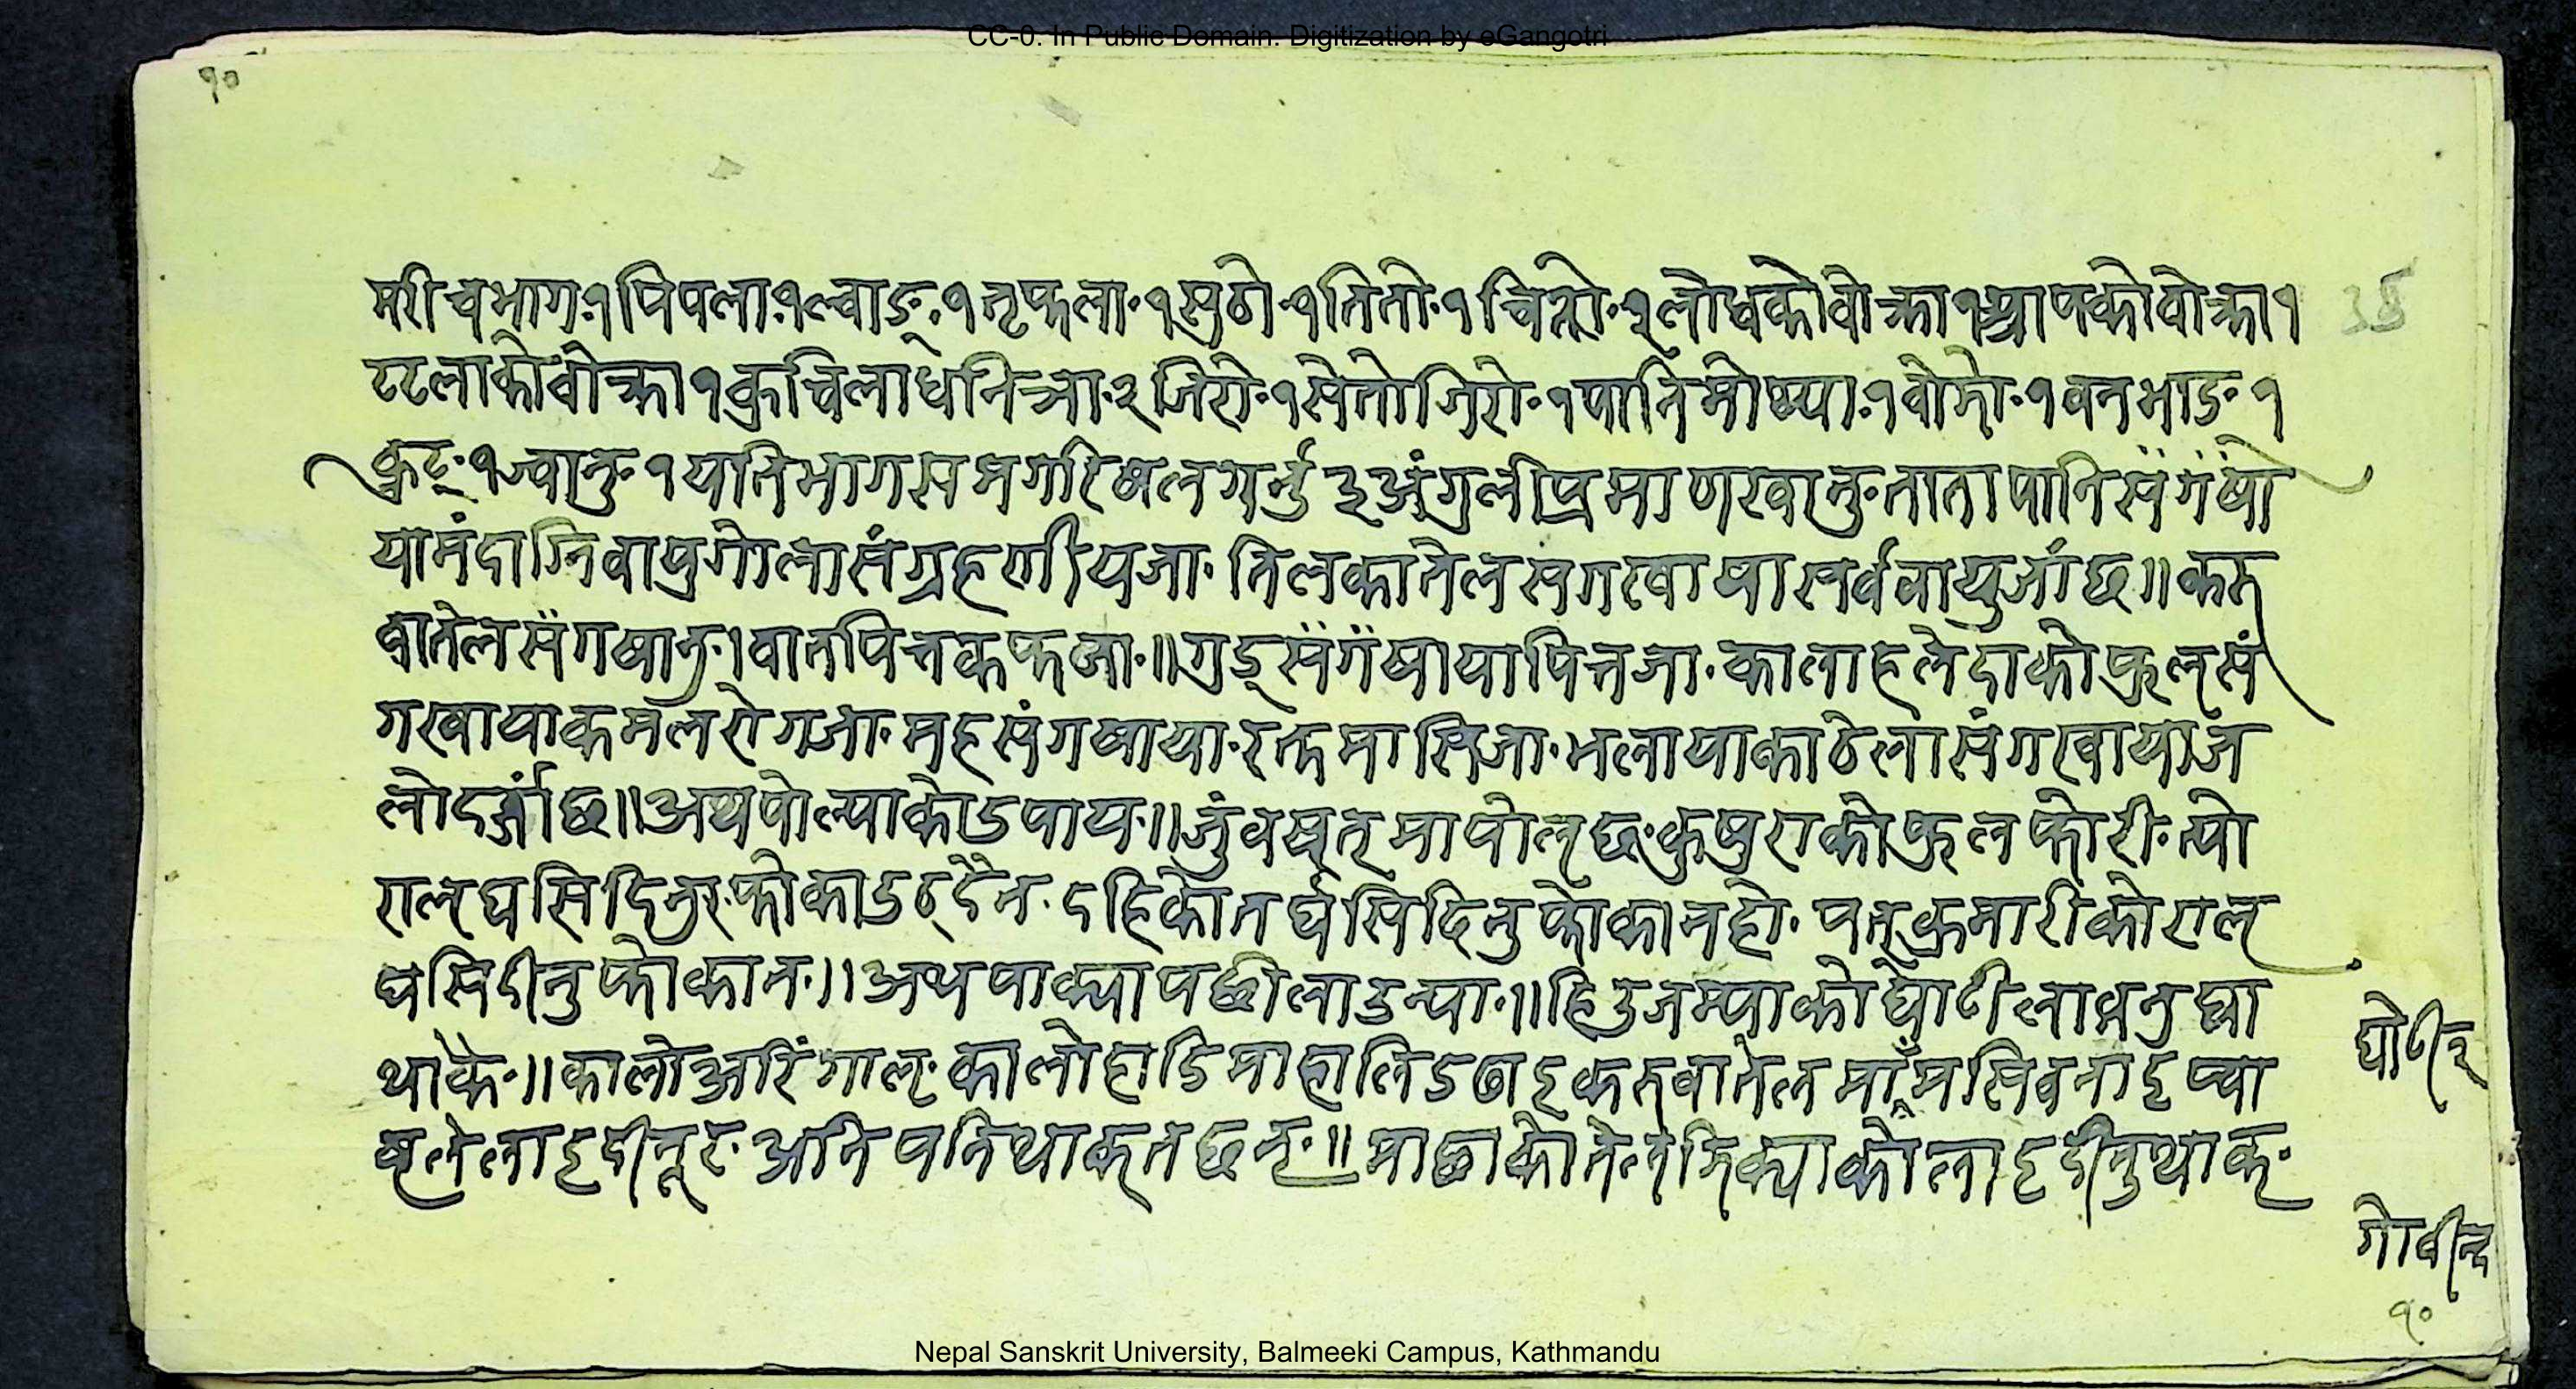 CC-0. In Public Domain. Digitization by eGangotri
१०
मरीचभाग.१ पिपला.१ ल्वाङ.१ तृफला.१ सुठो.१ तितो.१ चित्रो.१ लोधको वोक्रा १ को वोक्रा १
टटलाको वोक्रा १ कुचिला धनिञा.२ जिरो.१ सेतो जिरो.१ पानि १ वोझो.१ वनभाङ १
कुट.१ ज्वानु १ यति भाग सम गरि षल गर्नु ३ अंगुली प्रमाण खानु ताता पानि संग षा
या मंदाग्नि वायुगोला संग्रहणी य जा. तिलका तेल सग षाया सर्व वायु जांछ॥ करु
वा तेल संग षानु। वात पित्त कफ जा.॥ गुड संग षाया पित्त जा. काला हलेदाको फुल सं
ग खाया कमलरोग जा. मह संग षाया. रक्तमासि जा. भलायाका ठेला संग खाया ज
लोदर जांछ॥ अथ पोल्याको उपाय.॥ जुं वषत्मा पोल्छ कुषुराको फुल फोरी. त्यो
राल् घसिदिनु फोका उठ्दैन. दहिको तर घसिदिनु फोका नहो. घृत्कुमारीको राल्
घसिदीनु फोका न.॥ अथ पाक्या पछी लाउन्या.॥ हिउ जम्याको घोटी लाउनु घा
थाकै.॥ कालो अरिंगाल् कालो हाडिमा हालि डढाइ करुवा तेलमाँ मसि वनाइ प्वा
षले लाइदीनू अनि पनि थाक्तछन्.॥ माछाको तेल् झिक्याको लाइदीनु थाक्.
घोटी
गोवीन्द
१०
Nepal Sanskrit University, Balmeeki Campus, Kathmandu